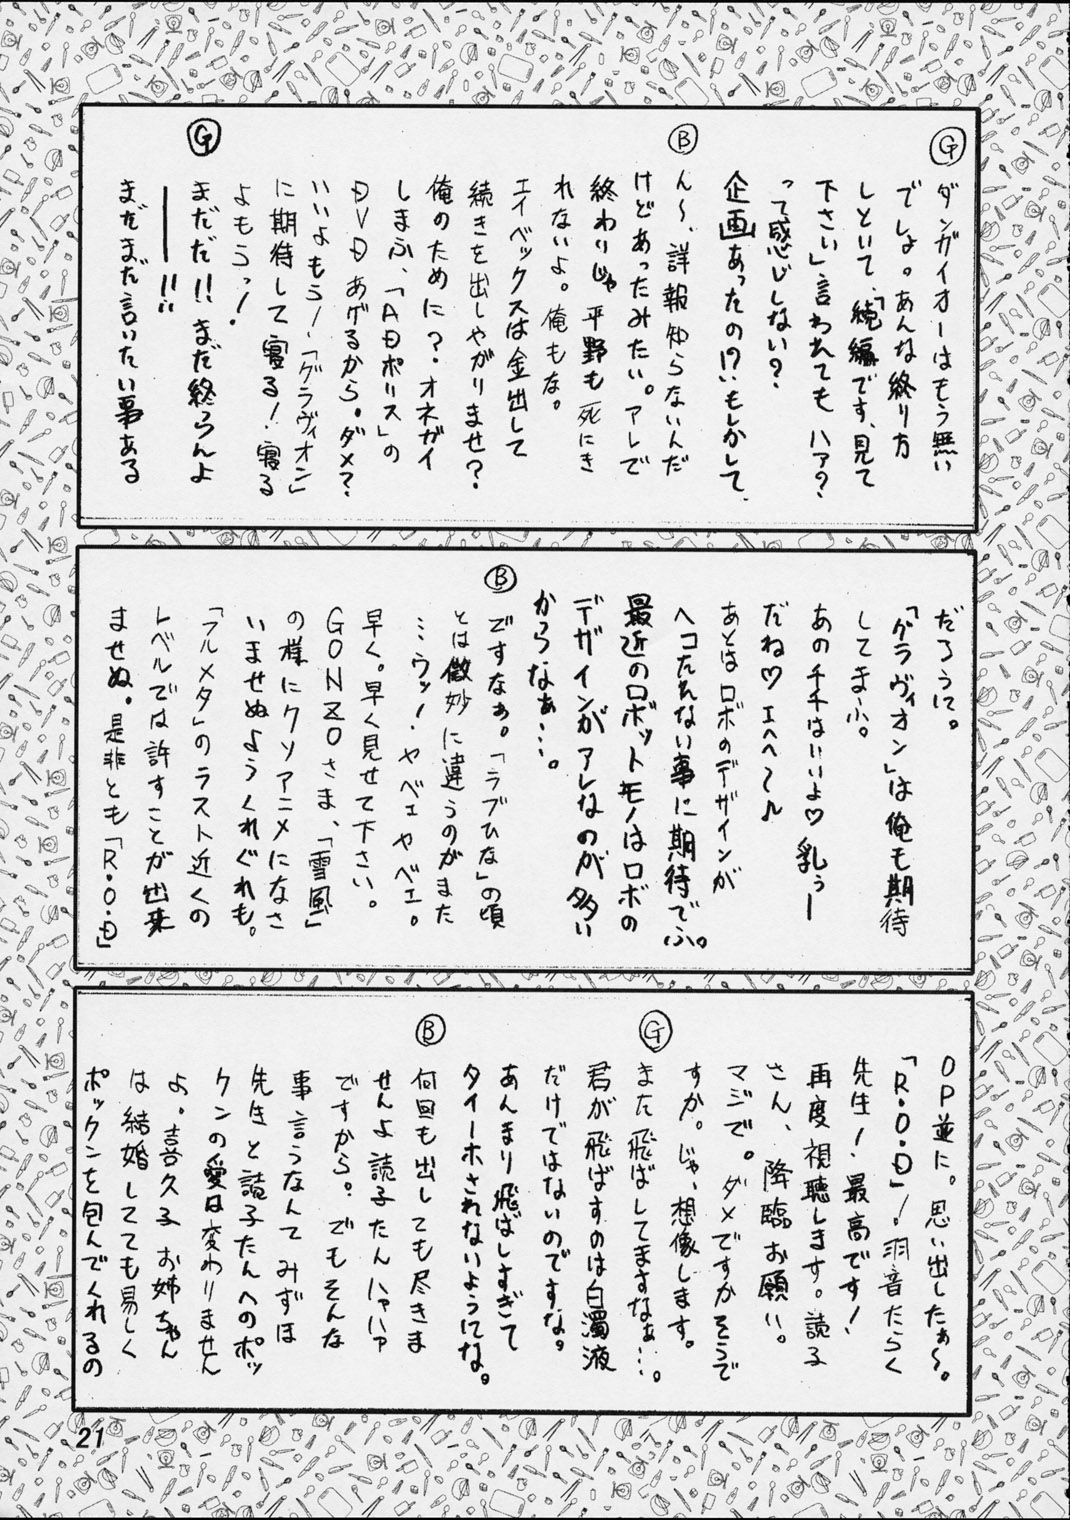 G
ダンガイオーはもう無い
でしょ。あんな終り方
しといて、「続編です、見て
下さい」言われても ハァ?
って感じしない?
企画あったの!?もしかして、
B
ん〜、詳報知らないんだ
けどあったみたい。アレで
終わりじゃ 平野も死にき
れないよ。俺もな。
エイベックスは金出して
続きを出しやがりませ?
俺のために?オネガイ
しまふ、「ADポリス」の
DVDあげるから。ダメ?
いいよもう!「グラヴィオン」
に期待して寝る!寝る
よもうっ!
G
まだだ!!まだ終らんよ
――!!
まだまだ言いたい事ある
だろうに。
「グラヴィオン」は俺も期待
してまふ。
あの千千はいいよ♡乳ぅー
だね♡エヘヘ〜♪
あとはロボのデザインが
ヘコたれない事に期待でふ。
最近のロボットモノはロボの
デザインがアレなのが多い
からなぁ…。
B
ですなぁ。「ラブひな」の頃
とは微妙に違うのがまた
…ウッ!ヤベェヤベェ。
早く。早く見せて下さい。
GONZOさま、「雪風」
の様にクソアニメになさ
いませぬようくれぐれも。
「フルメタ」のラスト近くの
レベルでは許すことが出来
ませぬ。是非とも「R.O.D」
OP並に。思い出したぁ〜。
「R.O.D」!羽音たらく
先生!最高です!
再度視聴します。読子
さん、降臨お願い。
マジで。ダメですかそうで
すか。じゃ、想像します。
G
また飛ばしてますなぁ…。
君が飛ばすのは白濁液
だけではないのですな。
あんまり飛ばしすぎて
タイーホされないようにな。
B
何回も出しても尽きま
せんよ読子たんハァハァ
ですから。でもそんな
事言うなんて みずほ
先生と読子たんへのポッ
クンの愛は変わりません
よ。喜久子お姉ちゃん
は結婚してても易しく
ポックンを包んでくれるの
21